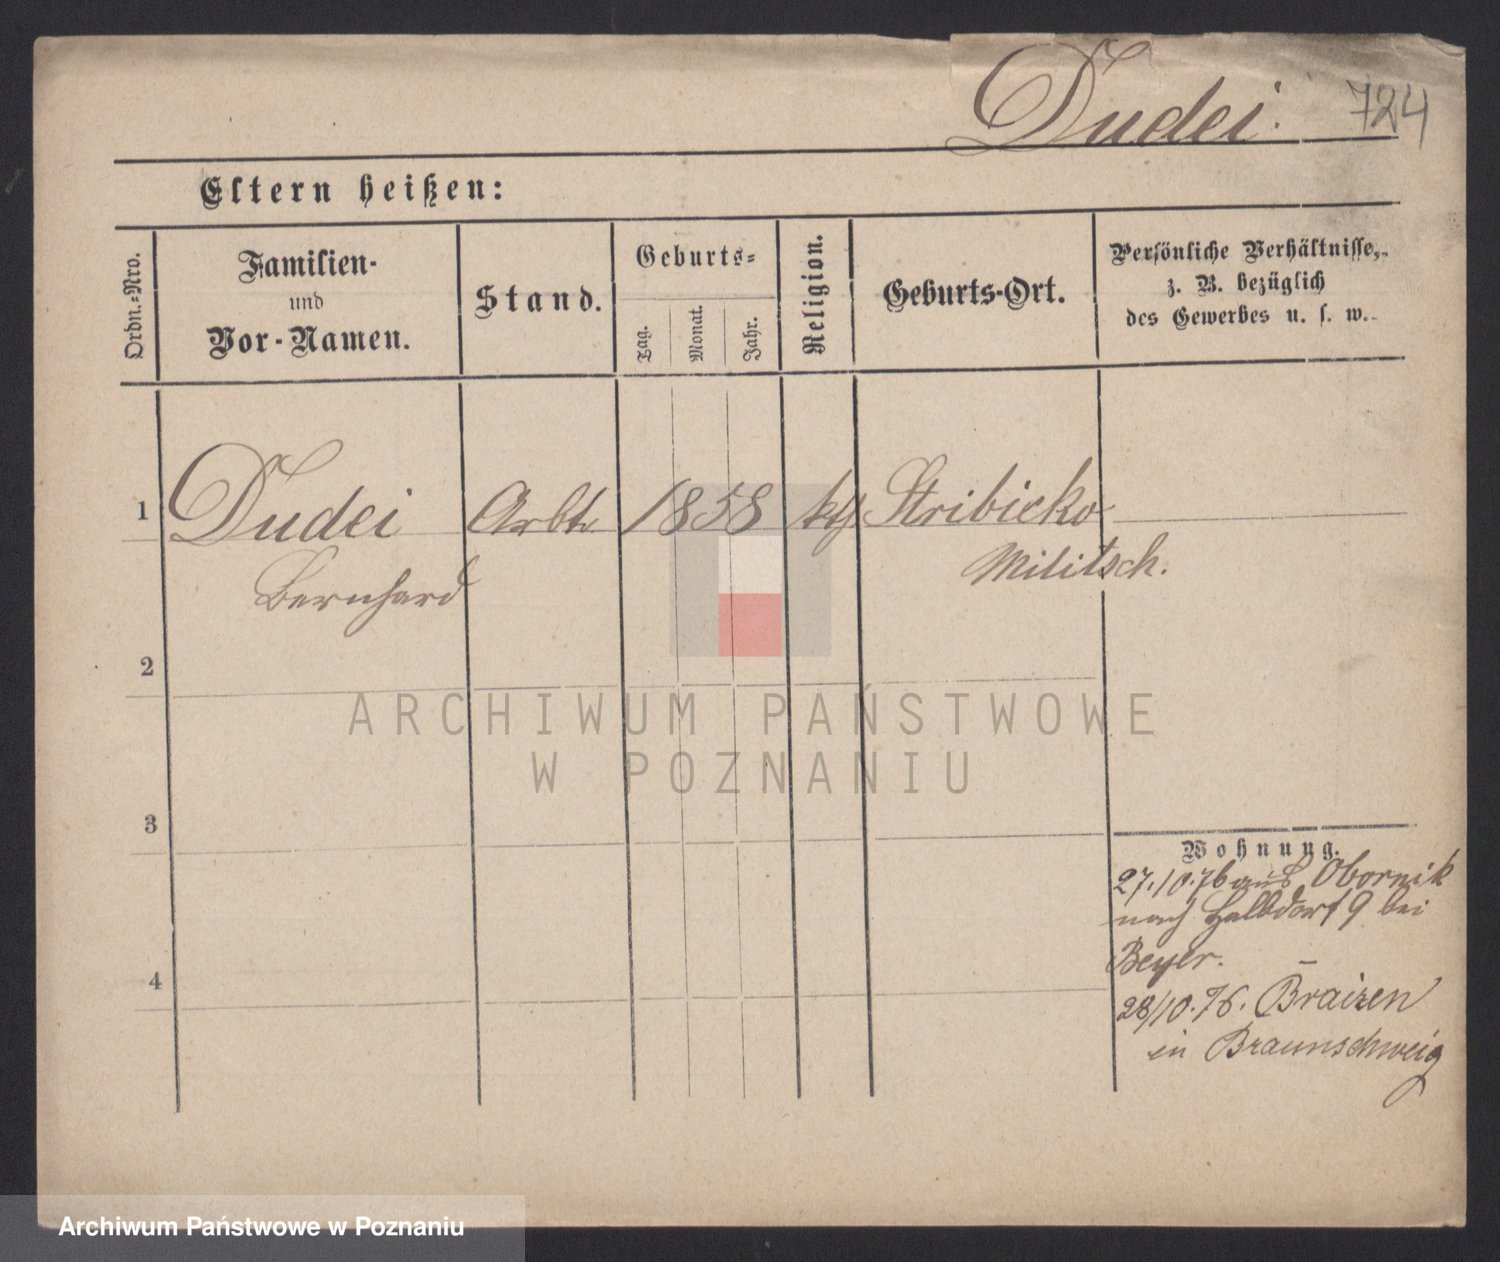 Dudei. 724
Eltern heißen:
Ordn.=Nro.
Familien-
und
Vor-Namen.
Stand.
Geburts=
Tag.
Monat.
Jahr.
Religion.
Geburts-Ort.
Persönliche Verhältnisse,
z. B. bezüglich
des Gewerbes u. s. w.
1 Dudei Arbtr 1858 kth Stribicko
Bernhard Militsch.
2
3
4
Wohnung.
27.10.76 aus Obornik
nach Halbdorf 9 bei
Beyer.
28/10.76. Braizen
in Braunschweig
ARCHIWUM PAŃSTWOWE
W POZNANIU
Archiwum Państwowe w Poznaniu